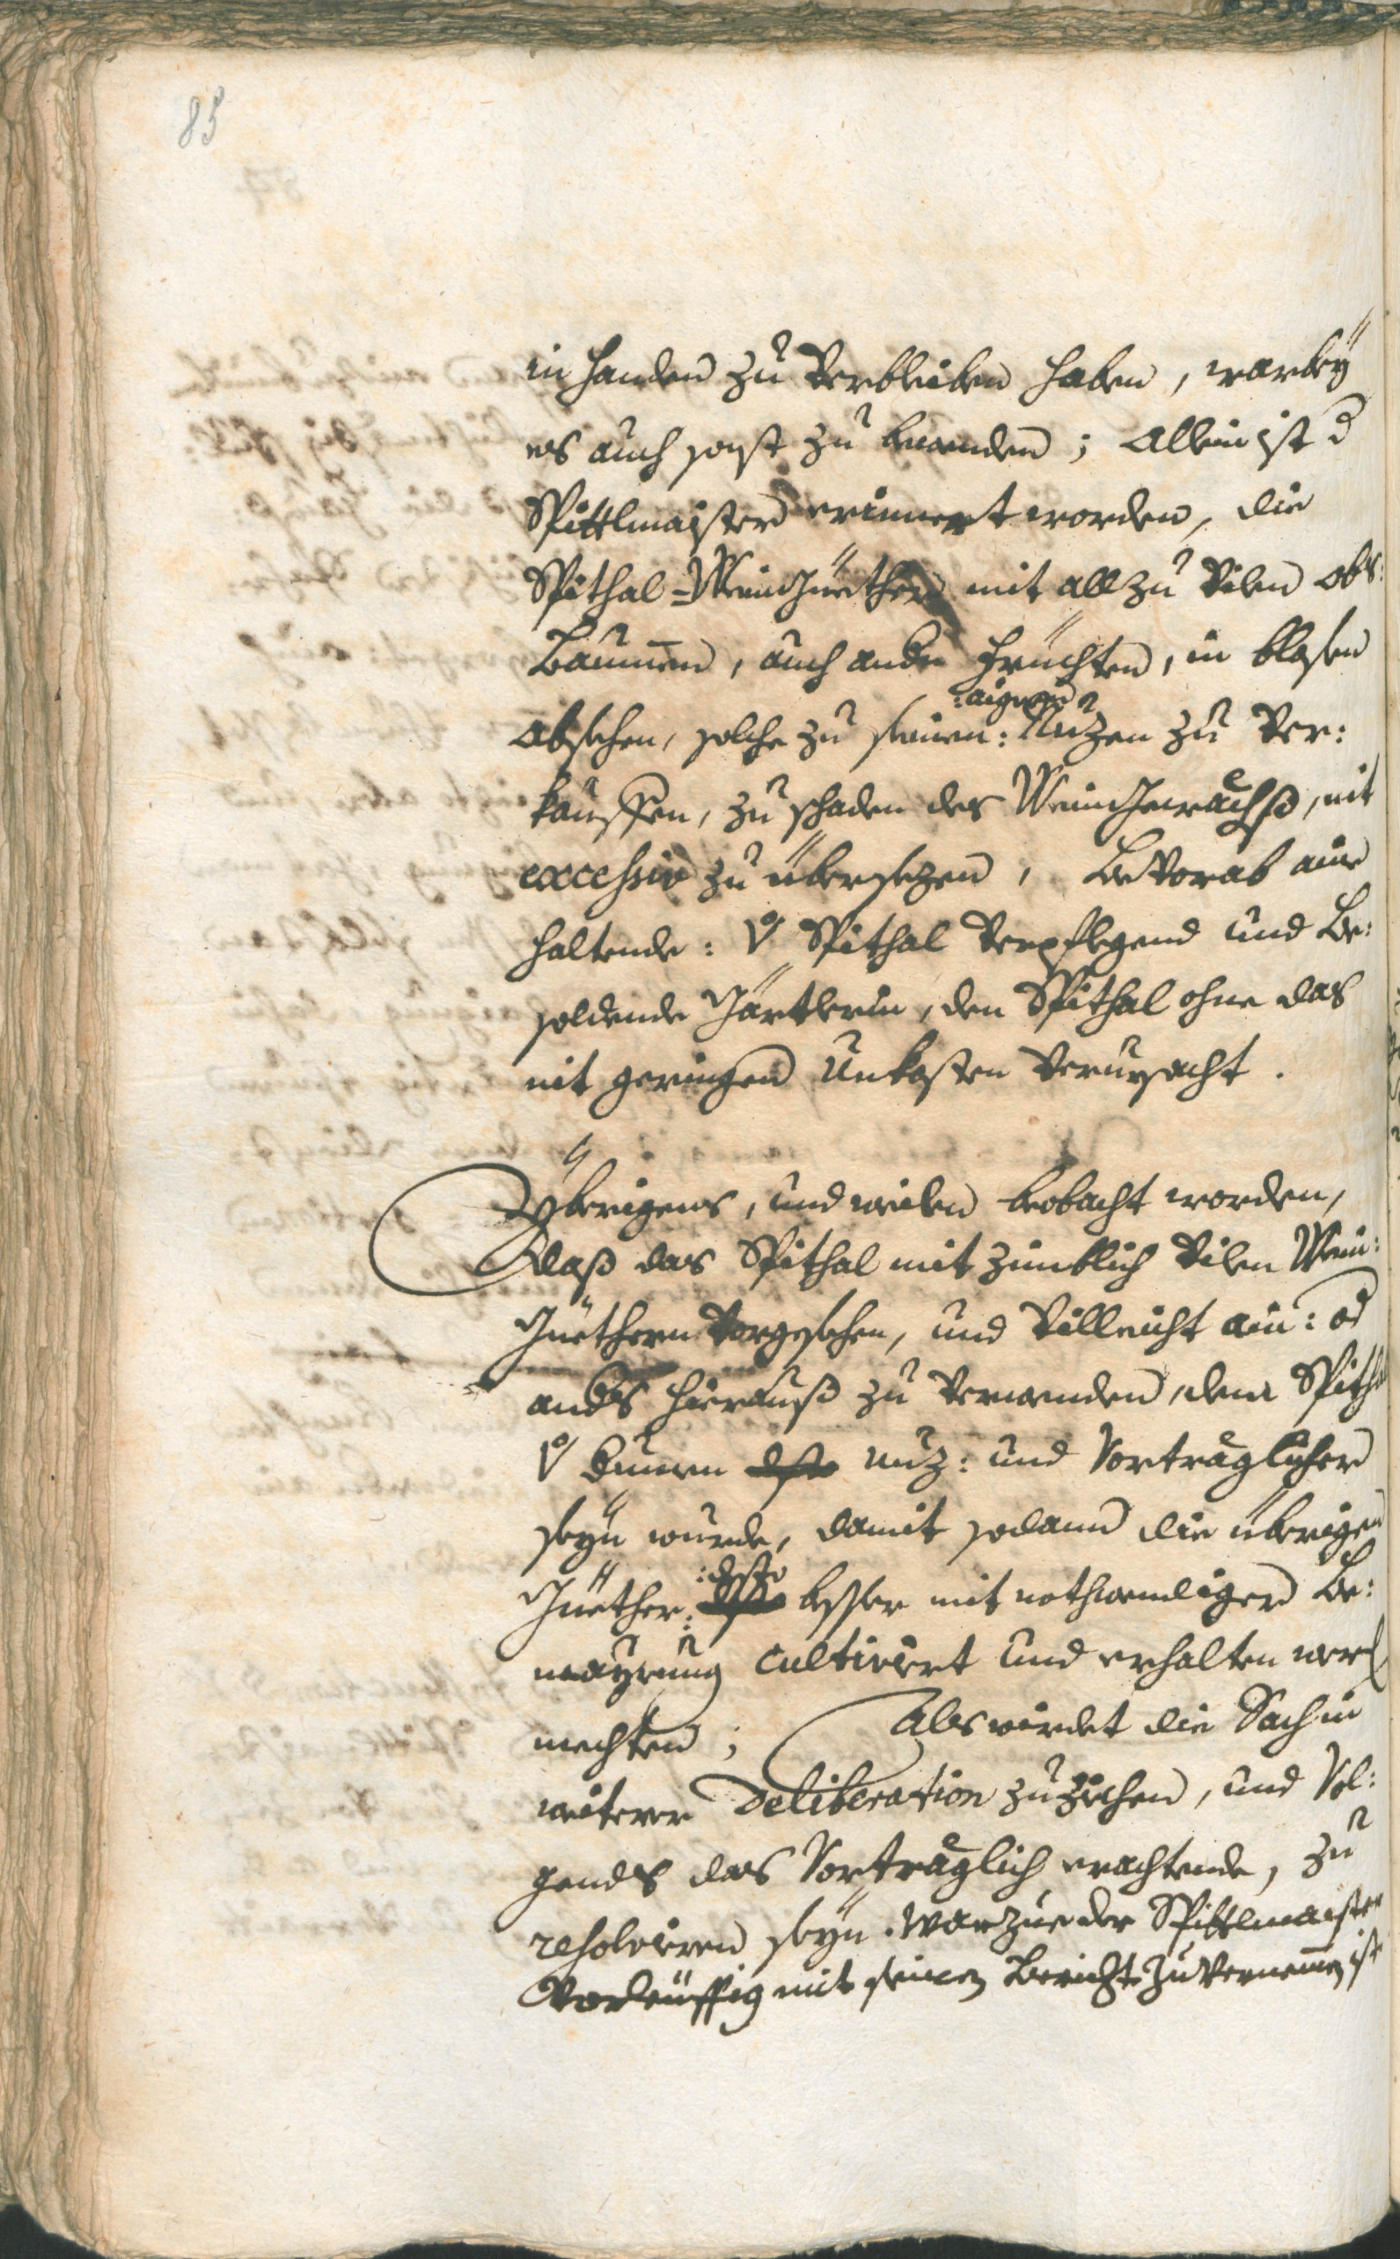 85
in handen zu Verbleiben haben, warbey
es auch sonst zu bewenden; Allein ist d
Spittlmaister erinnert worden, die
Spithal=Weingüether mit allzu Vilen obs:
Baumen, auch andn Früchten, in blosen
absehen, solche zu seinen: Nuzen zu Ver:
:aignen
kauffen, zu schaden des Weingewächß, nit
excessiv zu übersezen, bevorab eine
haltende: Vo Spithal Verpflegend und Be:
soldende Gärtlerin, den Spithal ohne das
nit geringen Unkosten Verursacht.
Yberigens, und weilen beobacht worden,
daß das Spithal mit zimblich Vilen Wein:
Güethern Vorgesehen, und Villeicht ain: od
ands hierauß zu Verwenden, dem Spithal
nuz: und Vorträglicher
seyn wurde, damit sodann die übrigen
:desto
Güether: besser mit nothwendiger Be:
mayrung cultiviert und erhalten werd
mechten; Als wirdet die Sach in
weitere Deliberation zuziehen, und Vol:
gends das Vorträglich erachtende, zu
resolvieren seyn. warzue der Spittlmaister
Vorleüffig mit seinen Bericht zu Vernemen ist